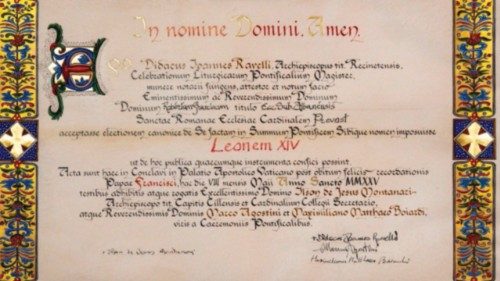 In nomine Domini. Amen.
Ego Didacus Ioannes Ravelli, Archiepiscopus tit. Recinetensis,
Celebrationum Liturgicarum Pontificalium Magister,
munere notarii fungens, attestor et notum facio
Eminentissimum ac Reverendissimum Dominum
Dominum titulo
Sanctae Romanae Ecclesiae Cardinalem Prevost
acceptasse electionem canonice de Se factam in Summum Pontificem Sibique nomen imposuisse
Leonem XIV
ut de hoc publica quaecumque instrumenta confici possint.
Acta sunt haec in Conclavi in Palatio Apostolico Vaticano post obitum felicis recordationis
Papae Francisci, hac die VIII mensis Maii Anno Sancto MMXXV
testibus adhibitis atque rogatis Excellentissimo Domino Ilson de Jesus Montanari
Archiepiscopo tit. Capitis Cillensis et Cardinalium Collegii Secretario,
atque Reverendissimis Dominis Marco Agostini et Maximiliano Matthaeo Boiardi,
viris a Caeremoniis Pontificalibus.
+ Didacus Ioannes Ravelli